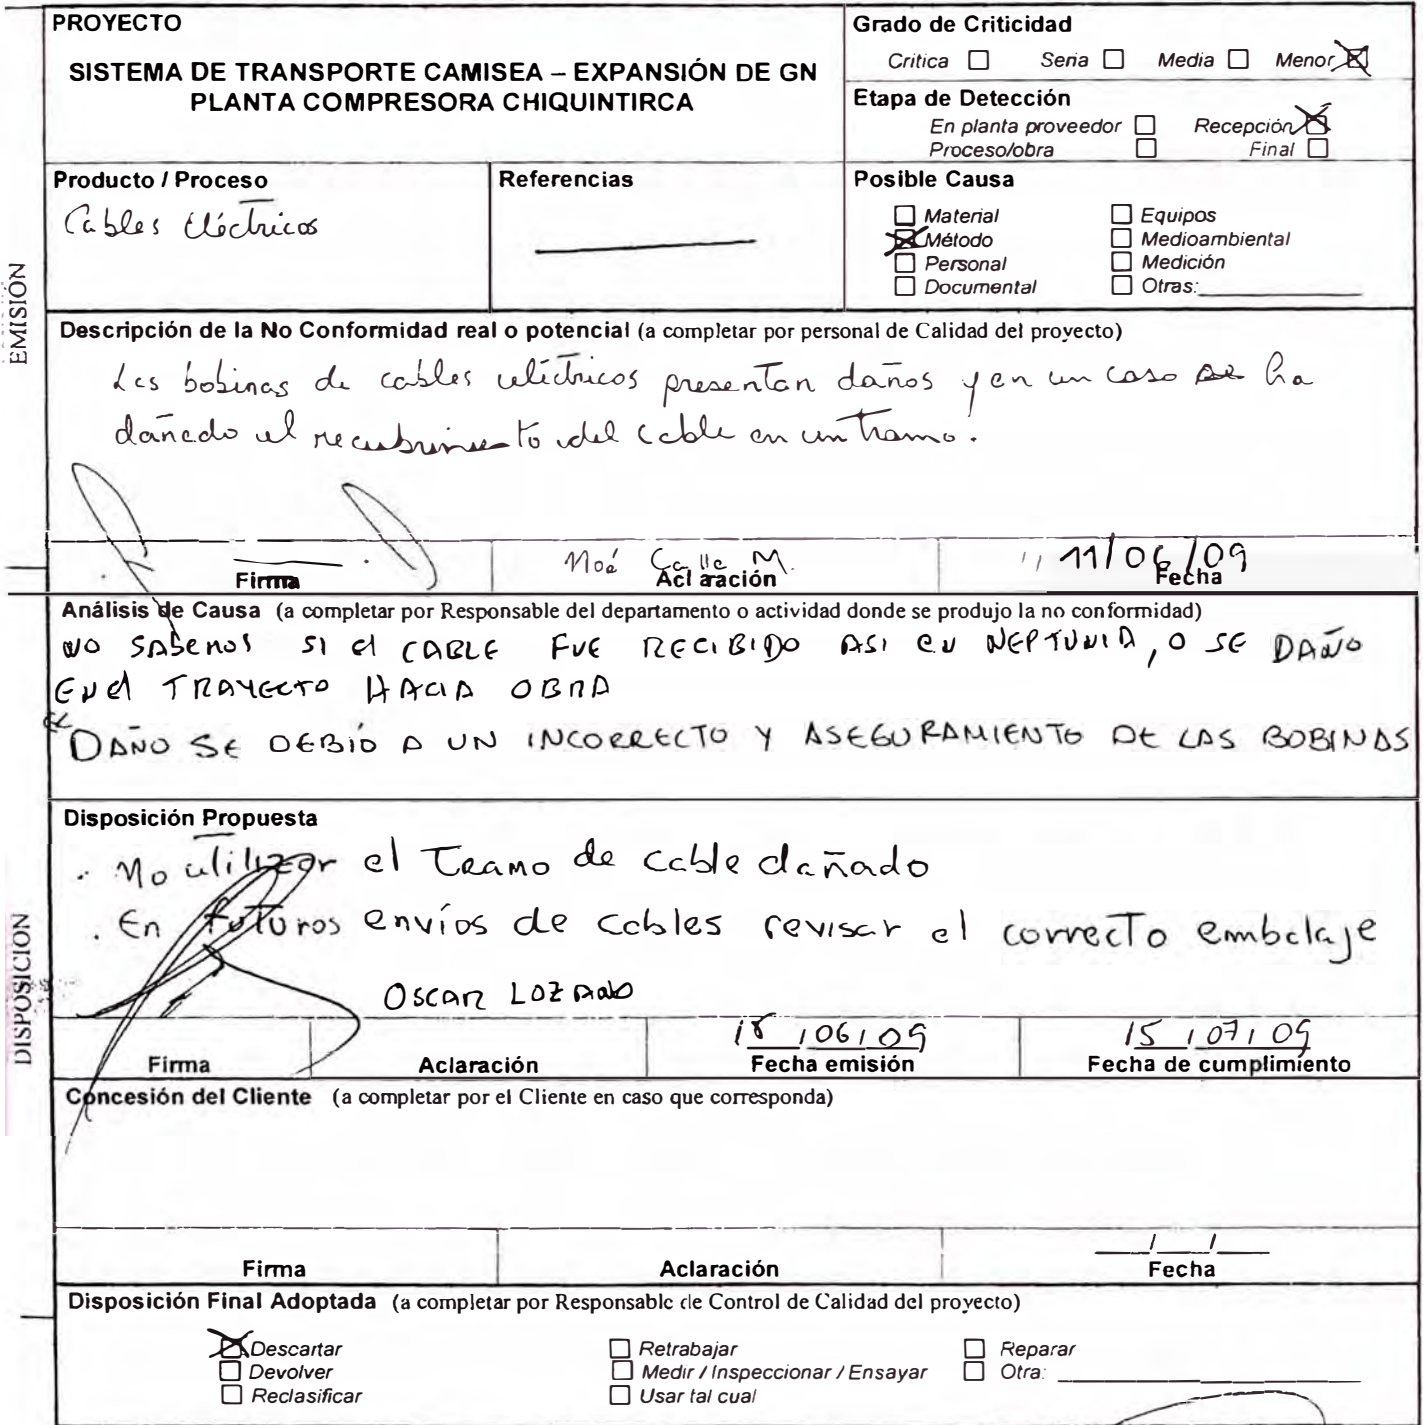 PROYECTO
SISTEMA DE TRANSPORTE CAMISEA – EXPANSIÓN DE GN
PLANTA COMPRESORA CHIQUINTIRCA
Grado de Criticidad
Critica Seria Media Menor
Etapa de Detección
En planta proveedor Recepción
Proceso/obra Final
Producto / Proceso
Cables Eléctricos
Referencias
Posible Causa
Material Equipos
Método Medioambiental
Personal Medición
Documental Otras:
EMISIÓN
Descripción de la No Conformidad real o potencial (a completar por personal de Calidad del proyecto)
Las bobinas de cables eléctricos presentan daños y en un caso se ha
dañado el recubrimiento del cable en un tramo.
Noé Calle M. 11/06/09
Firma Aclaración Fecha
Análisis de Causa (a completar por Responsable del departamento o actividad donde se produjo la no conformidad)
NO SABEMOS SI El CABLE FUE RECIBIDO ASI EN NEPTUNIA, O SE DAÑO
EN el TRAYECTO HACIA OBRA
EL DAÑO SE DEBIÓ A UN INCORRECTO Y ASEGURAMIENTO DE LAS BOBINAS
DISPOSICION
Disposición Propuesta
. No utilizar el Tramo de cable dañado
. En futuros envíos de cables revisar el correcto embalaje
OSCAR LOZANO
/06/09 15/07/09
Firma Aclaración Fecha emisión Fecha de cumplimiento
Concesión del Cliente (a completar por el Cliente en caso que corresponda)
__/__/__
Firma Aclaración Fecha
Disposición Final Adoptada (a completar por Responsable de Control de Calidad del proyecto)
Descartar Retrabajar Reparar
Devolver Medir / Inspeccionar / Ensayar Otra:
Reclasificar Usar tal cual